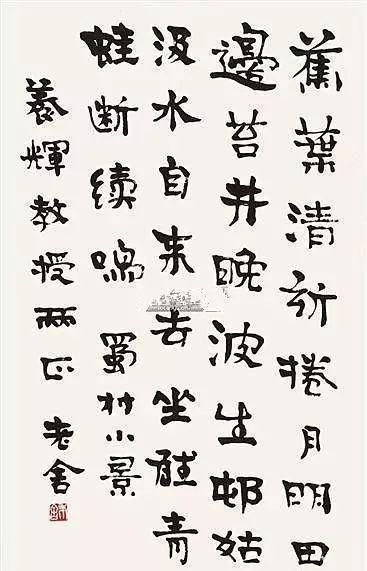 蕉葉清新捲月明田
邊苔井晚波生邨姑
汲水自来去坐聽青
蛙断续鳴 蜀村小景
養輝教授兩正 老舍